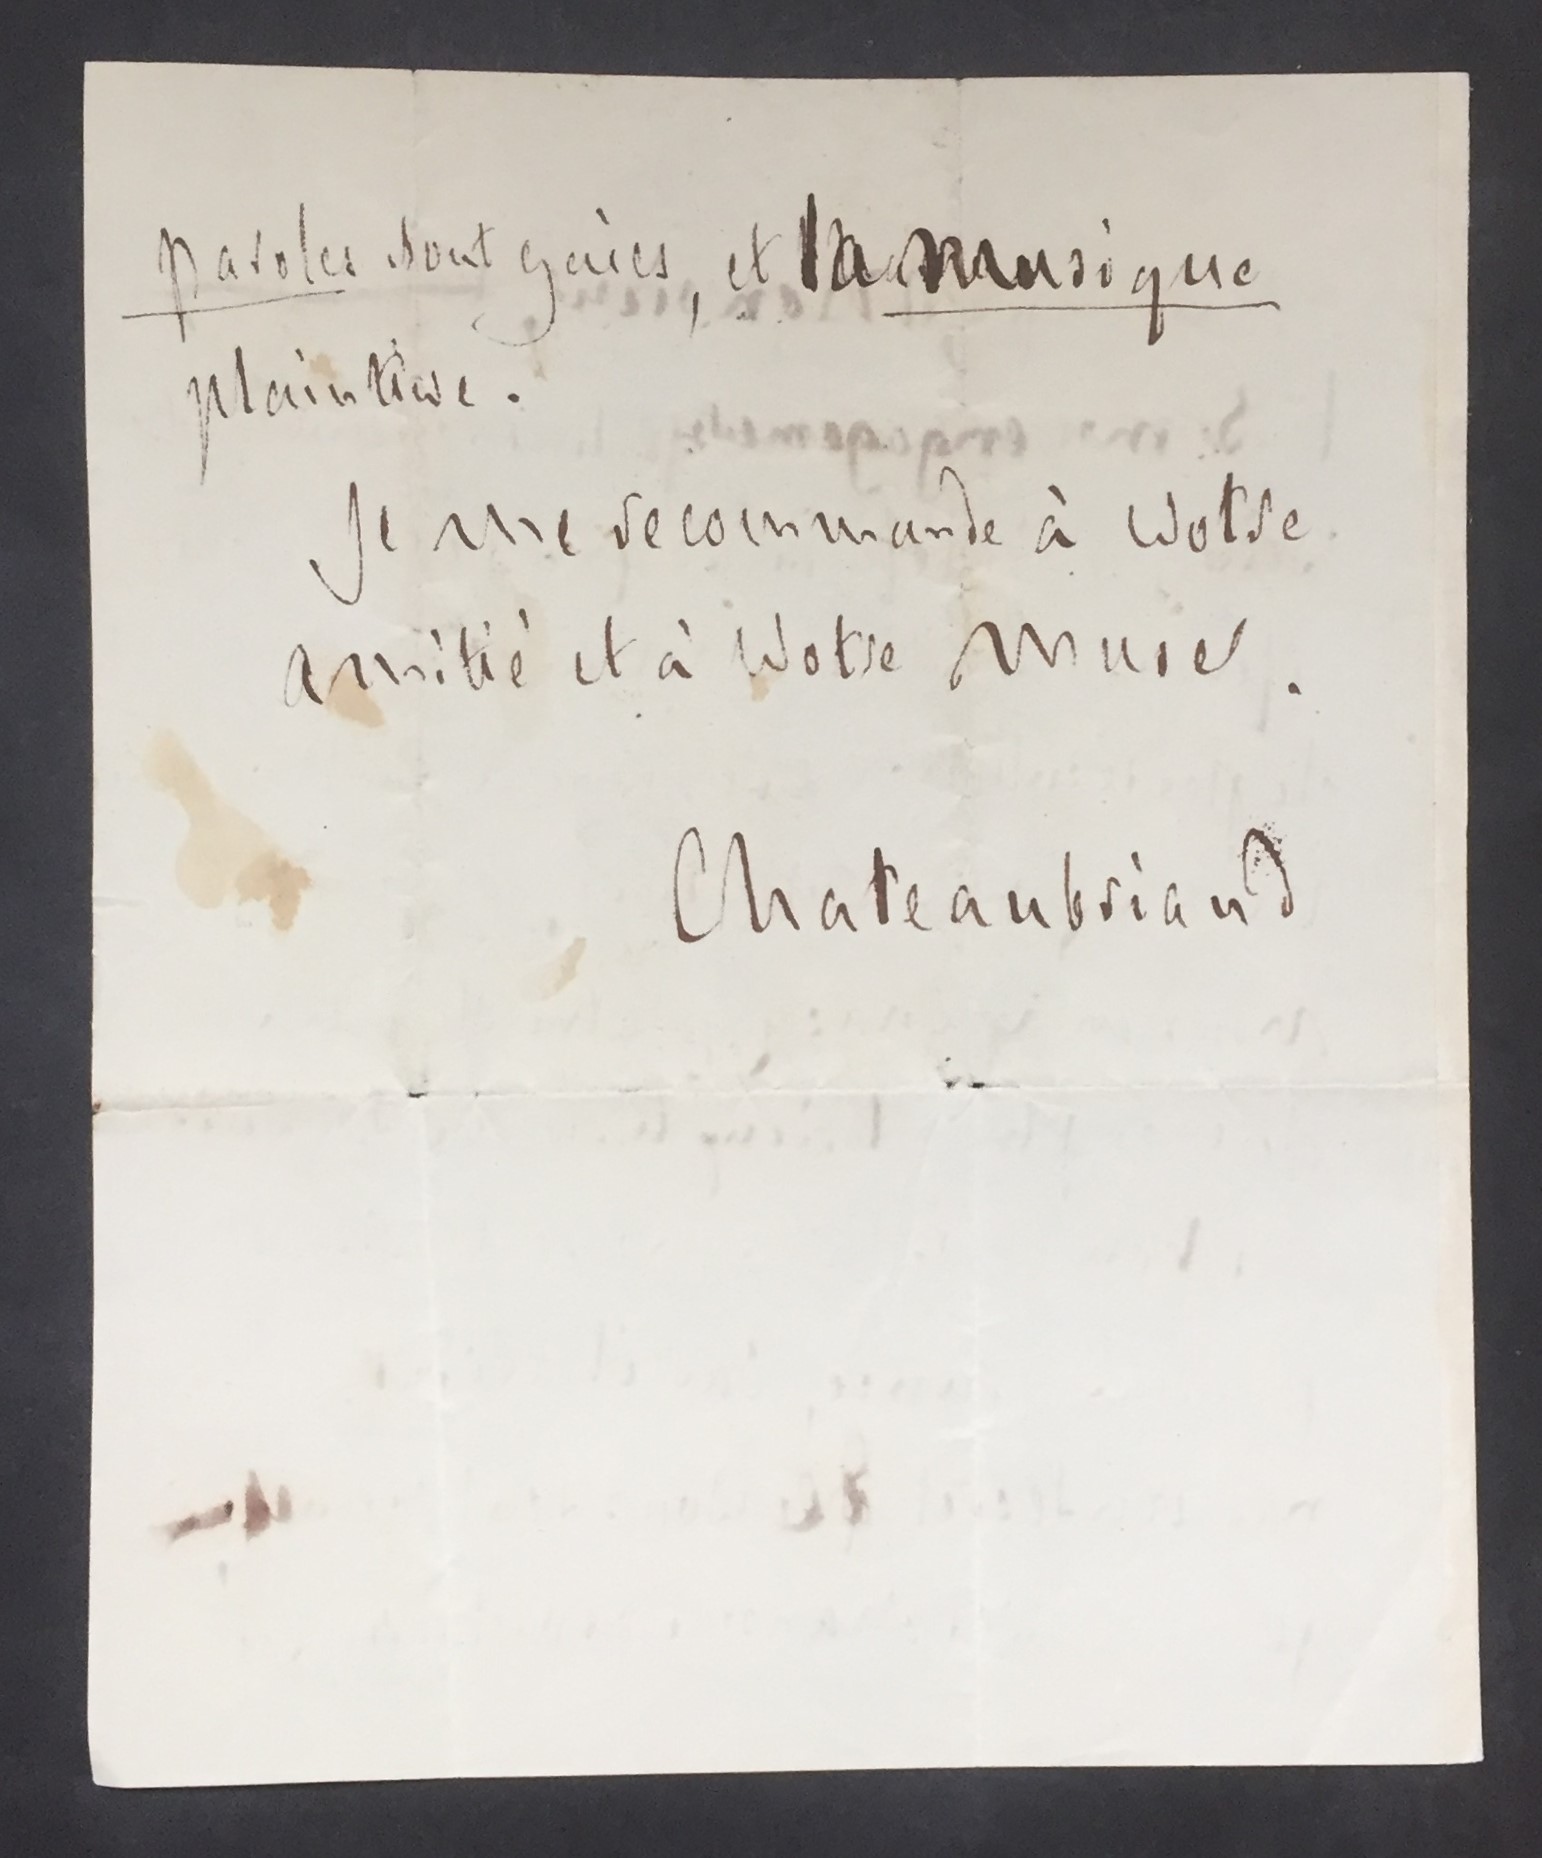 paroles sont gaies, et la musique
plaintive.
Je me recommande à votre
amitié et à votre muse.
Chateaubriand